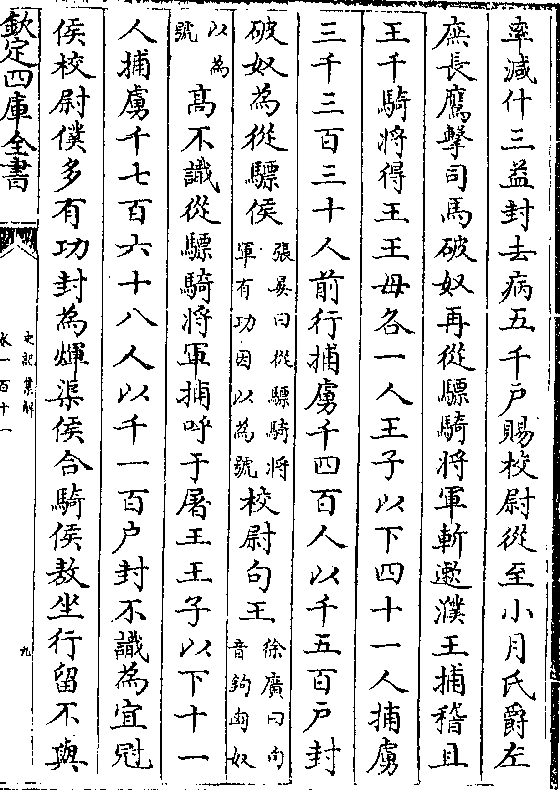 率減什三益封去病五千户賜校尉從至小月氏爵左
庶長鷹擊司馬破奴再從驃騎將軍斬遬濮王捕稽且
王千騎將得王王母各一人王子以下四十一人捕虜
三千三百三十人前行捕虜千四百人以千五百户封
破奴為從驃侯張晏曰從驃騎將軍有功因以為號校尉句王徐廣曰句音鉤匈奴
以為號高不識從驃騎將軍捕呼于屠王王子以下十一
人捕虜千七百六十八人以千一百户封不識為宜冠
侯校尉僕多有功封為煇渠侯合騎侯敖坐行留不與
欽定四庫全書
史記集解
卷一百十一
九